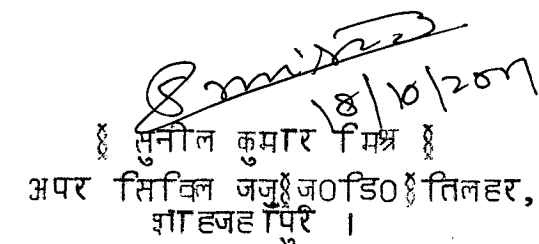 18/10/2011
§ सुनील कुमार मिश्र §
अपर सिविल जज§ज0डि0§ तिलहर,
शाहजहाँपुर ।